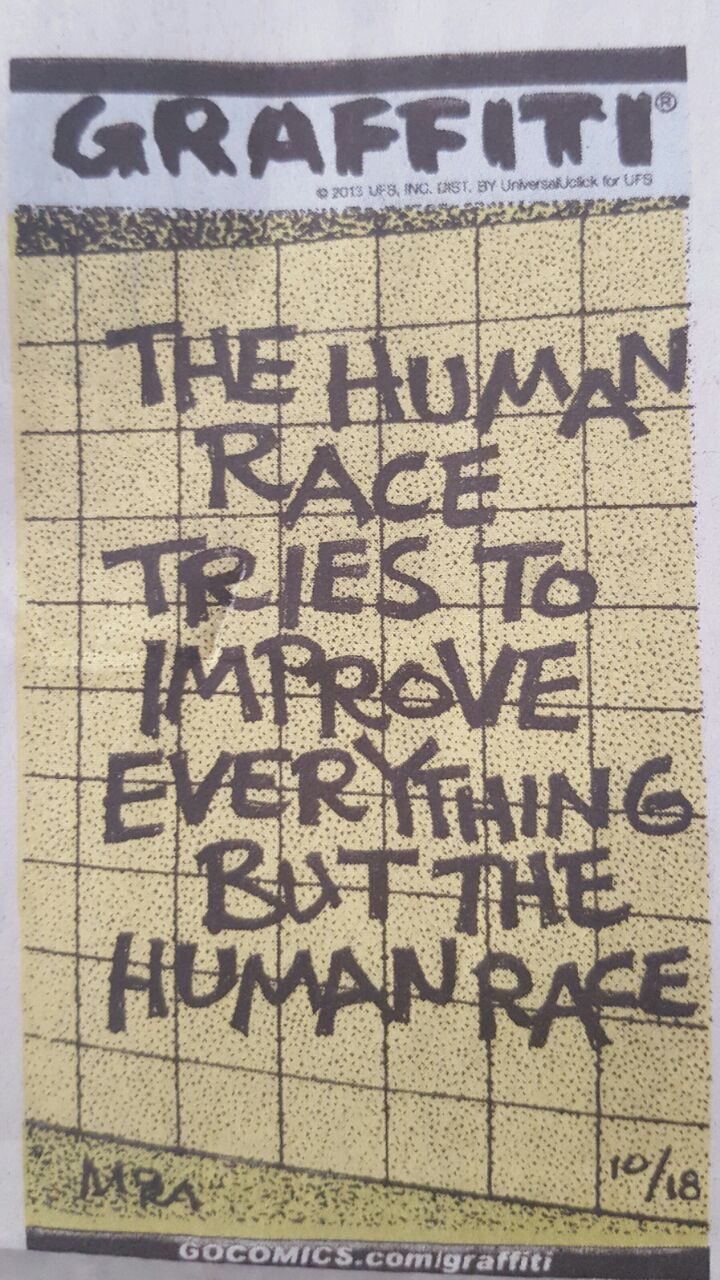 GRAFFITI®
© 2013 UFS, INC. DIST. BY Universal Uclick for UFS
THE HUMAN
RACE
TRIES TO
IMPROVE
EVERYTHING
BUT THE
HUMAN RACE
MRA
10/18
GOCOMICS.com/graffiti